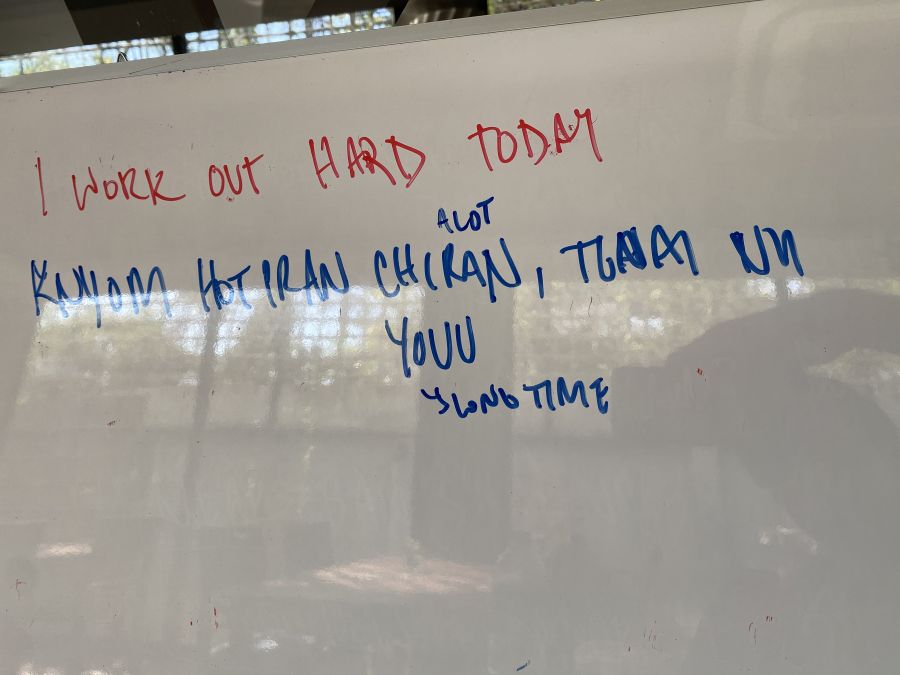 I WORK OUT HARD TODAY
ALOT
KNYOM HOT IRAN CHIRAN, TGNAI NU
YOUU
↳ LONG TIME